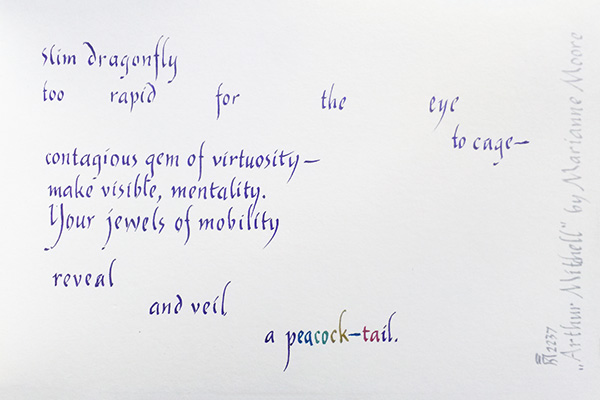 slim dragonfly
too rapid for the eye
to cage—
contagious gem of virtuosity—
make visible, mentality.
Your jewels of mobility
reveal
and veil
a peacock-tail.
„Arthur Mithell" by Marianne Moore
2237